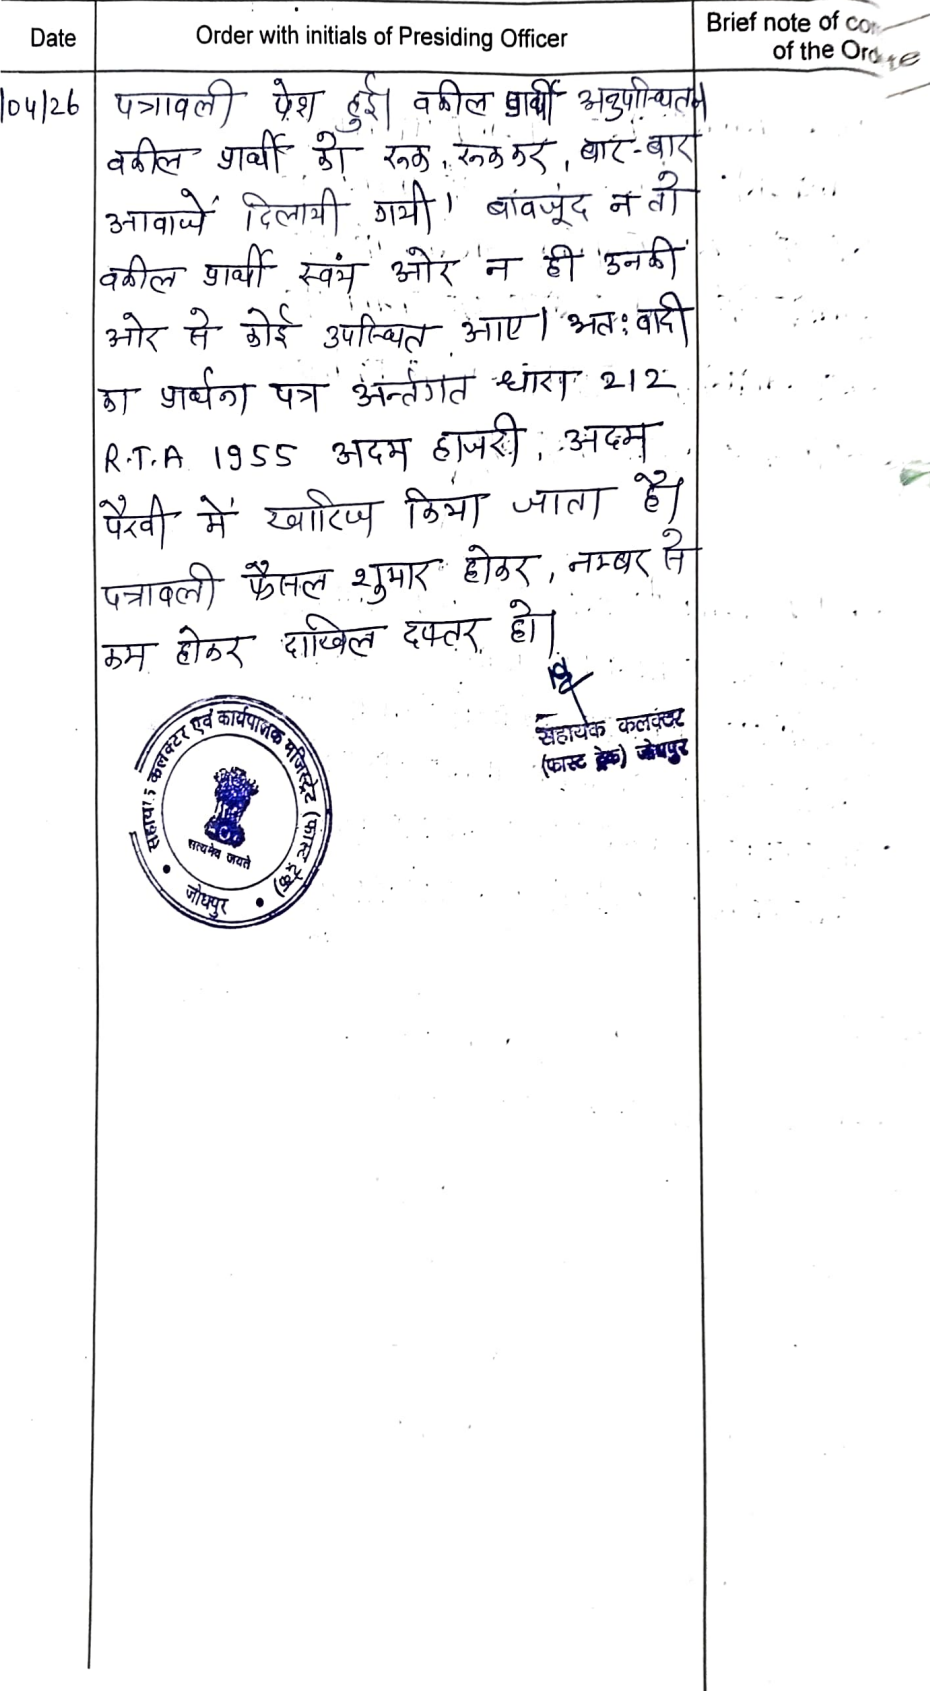 Date
Order with initials of Presiding Officer
Brief note of
of the
/04/26
पत्रावली पेश हुई। वकील प्रार्थी अनुपस्थित।
वकील प्रार्थी को रूक, रूककर, बार-बार
आवाजें दिलायी गयी। बावजूद न तो
वकील प्रार्थी स्वंय ओर न ही उनकी
ओर से कोई उपस्थित आए। अतः वादी
का प्रार्थना पत्र अर्न्तगत धारा 212
R.T.A 1955 अदम हाजरी, अदम
पैरवी में खारिज किया जाता है।
पत्रावली फैसल शुमार होकर, नम्बर से
कम होकर दाखिल दफ्तर हो।
सहायक कलक्टर
(फास्ट ट्रेक) जोधपुर
सहायक कलक्टर एवं कार्यपालक मजिस्ट्रेट (फास्ट ट्रेक)
सत्यमेव जयते
जोधपुर